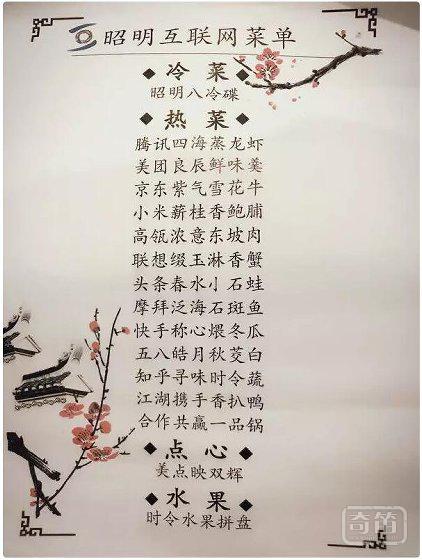 昭明互联网菜单
◆冷菜◆
昭明八冷碟
◆热菜◆
腾讯四海蒸龙虾
美团良辰鲜味羹
京东紫气雪花牛
小米薪桂香鲍脯
高瓴浓意东坡肉
联想缀玉淋香蟹
头条春水小石蛙
摩拜泛海石斑鱼
快手称心煨冬瓜
五八皓月秋茭白
知乎寻味时令蔬
江湖携手香扒鸭
合作共赢一品锅
◆点心◆
美点映双辉
◆水果◆
时令水果拼盘
奇简